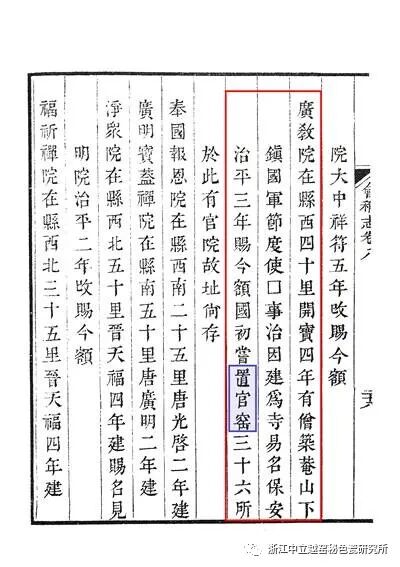 會稽志卷八
院大中祥符五年改賜今額
廣教院在縣西四十里開寶四年有僧築菴山下
鎮國軍節度使口事治因建爲寺易名保安
治平三年賜今額國初嘗置官窰三十六所
於此有官院故址尚存
奉國報恩院在縣西南二十五里唐光啓二年建
廣明寶蓋禪院在縣南五十里唐廣明二年建
淨衆院在縣西北五十里晉天福四年建賜名見
明院治平二年改賜今額
福祈禪院在縣西北三十五里晉天福四年建
浙江中立越窑秘色瓷研究所